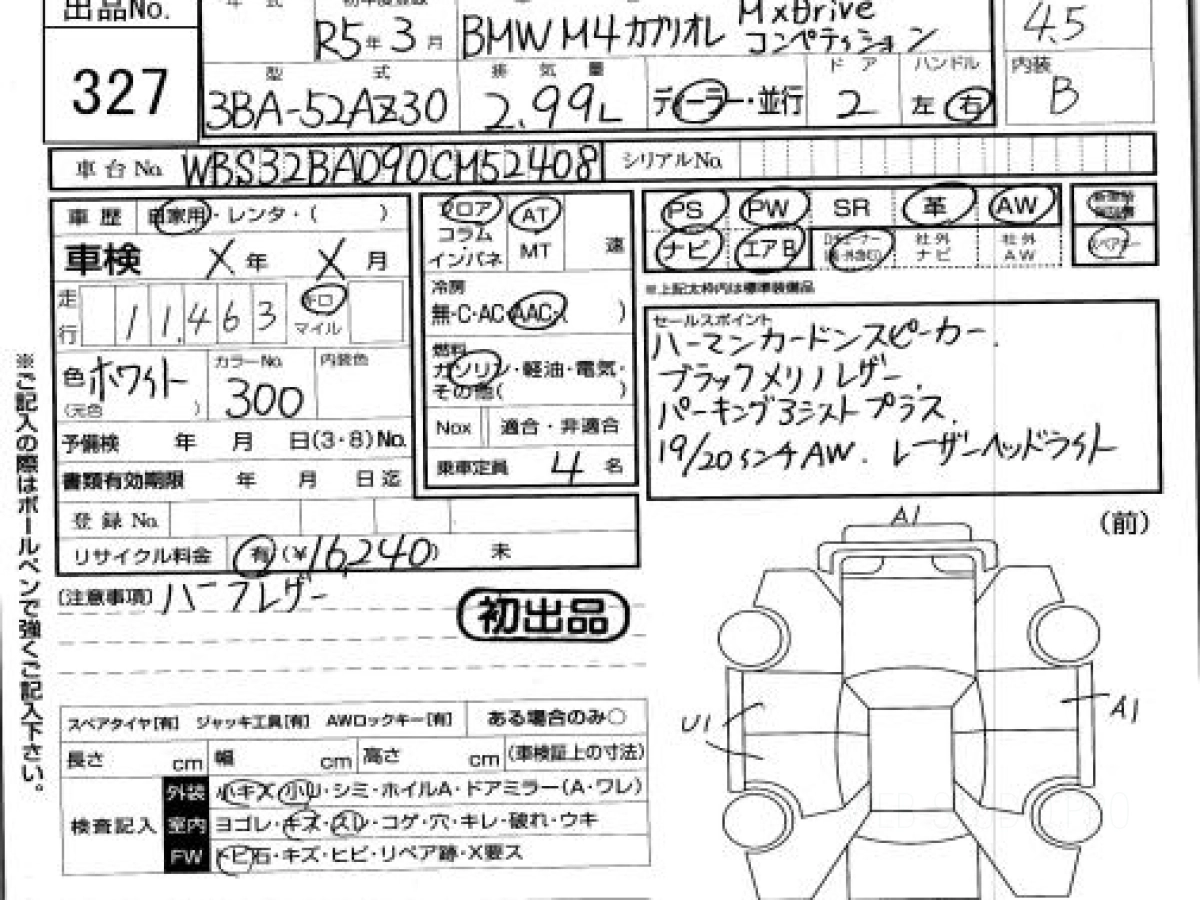 出品No.
年 式
初年度登録
327
R5年 3月
BMW M4 カブリオレ
MxDrive
コンペティション
4.5
型 式
排 気 量
ド ア
ハンドル
内装
3BA-52AZ30
2.99L
ディーラー・並行
2
左 右
B
車台No. WBS32BA090CM52408
シリアルNo.
車歴 自家用・レンタ・( )
車検 X年 X月
走行 11,463 キロ マイル
色 ホワイト
(元色 )
カラーNo. 300
内装色
予備検 年 月 日(3・8)No.
書類有効期限 年 月 日迄
登録No.
リサイクル料金 有(¥16,240) 未
フロア AT
コラム
・
インパネ MT
速
冷房
無・C・AC・AAC・( )
燃料
ガソリン・軽油・電気・
その他( )
Nox 適合・非適合
乗車定員 4 名
PS PW SR 革 AW
ナビ エアB
社外ナビ
社外AW
スペアキー
※上記太枠内は標準装備品
セールスポイント
ハーマンカードンスピーカー.
ブラックメリノレザー.
パーキングアシストプラス.
19/20インチAW. レーザーヘッドライト
[注意事項] ハーフレザー
初出品
※ご記入の際はボールペンで強くご記入下さい。
スペアタイヤ[有] ジャッキ工具[有] AWロックキー[有] ある場合のみ○
長さ cm 幅 cm 高さ cm (車検証上の寸法)
検査記入
外装 小キズ・小U・シミ・ホイルA・ドアミラー(A・ワレ)
室内 ヨゴレ・キズ・スレ・コゲ・穴・キレ・破れ・ウキ
FW トビ石・キズ・ヒビ・リペア跡・X要ス
(前)
A1
U1
A1